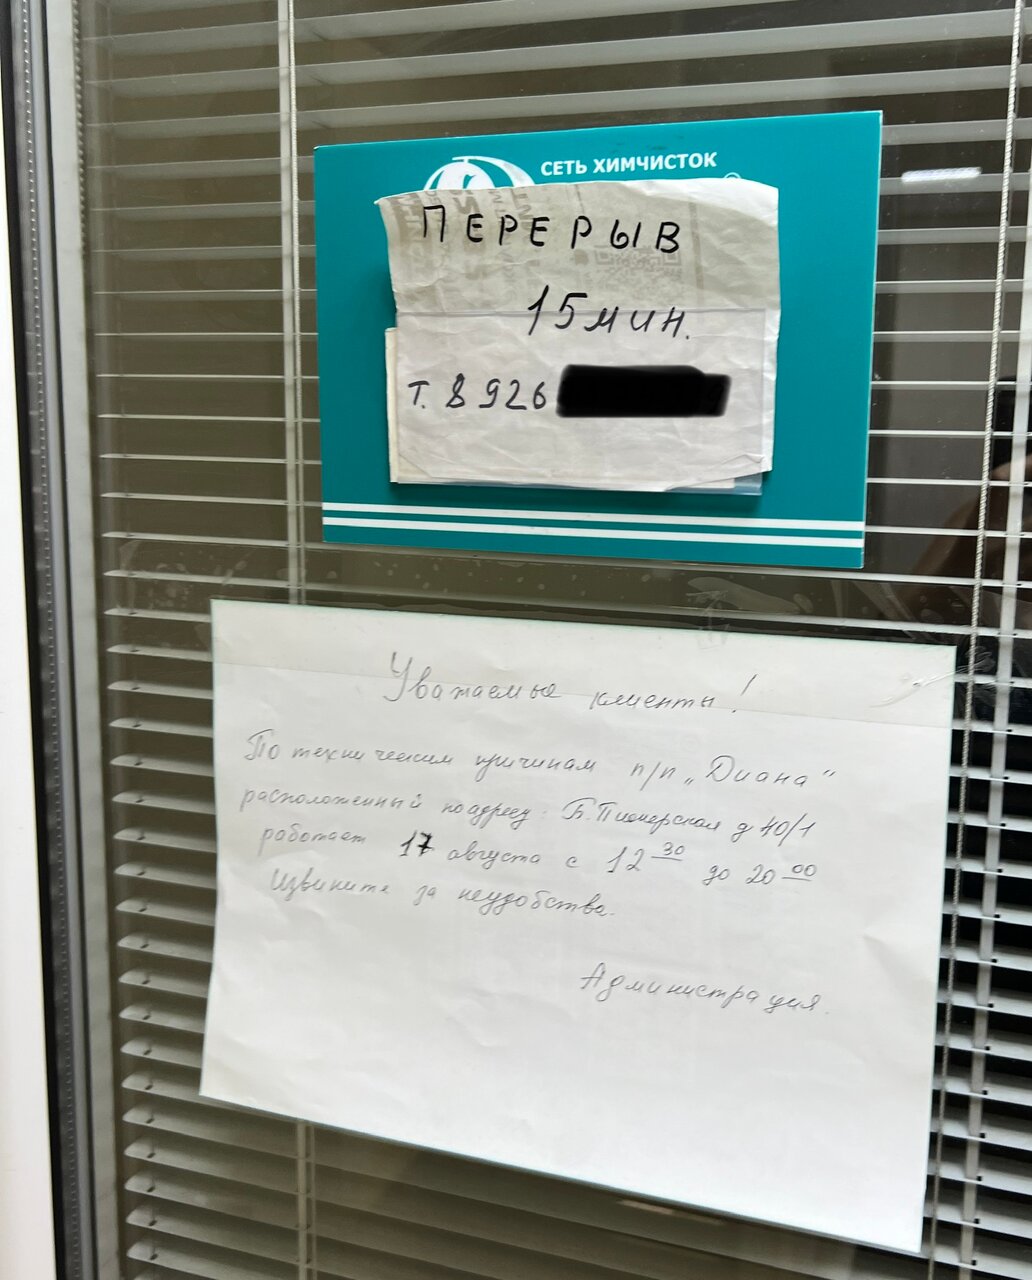 СЕТЬ ХИМЧИСТОК
ПЕРЕРЫВ
15 мин.
т. 8 926
Уважаемые клиенты!
По техническим причинам п/п „Диана“
расположенный по адресу: Б. Пионерская д 40/1
работает 17 августа с 12 30 до 20 00
Извините за неудобства.
Администрация.